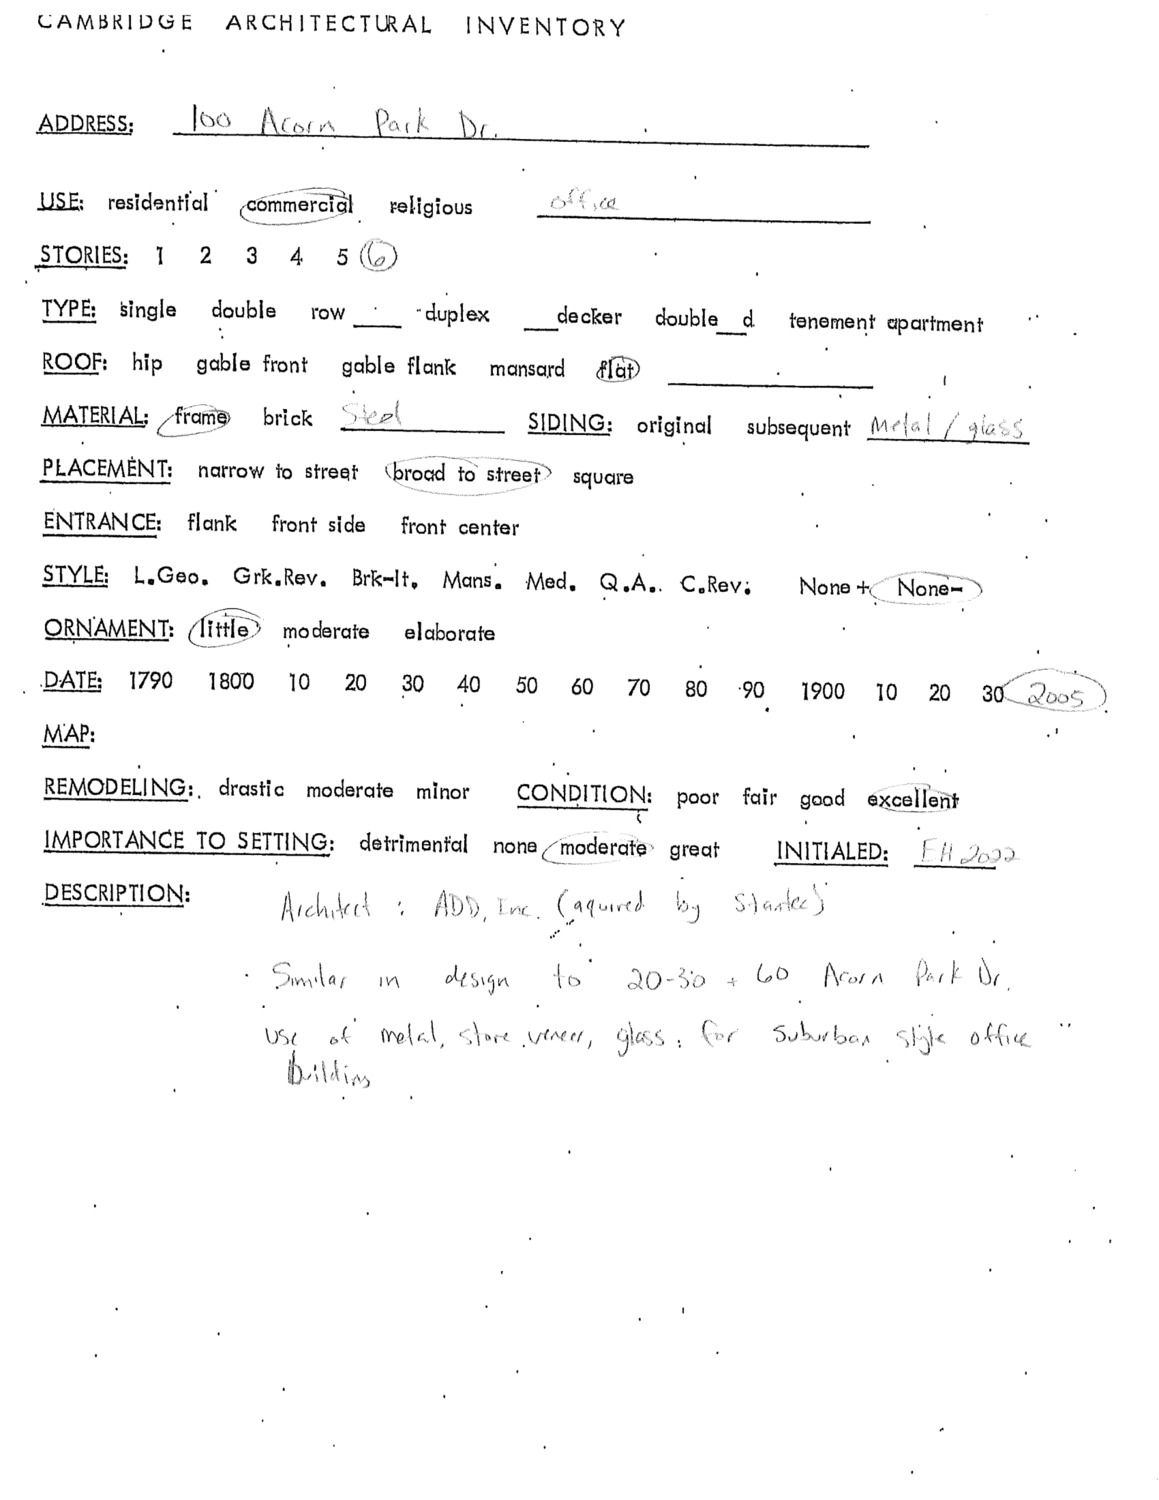 CAMBRIDGE ARCHITECTURAL INVENTORY
ADDRESS: 100 Acorn Park Dr.
USE: residential commercial religious office
STORIES: 1 2 3 4 5 6
TYPE: single double row ___ duplex ___decker double__d tenement apartment
ROOF: hip gable front gable flank mansard flat ___
MATERIAL: frame brick Steel SIDING: original subsequent Metal / glass
PLACEMENT: narrow to street broad to street square
ENTRANCE: flank front side front center
STYLE: L.Geo. Grk.Rev. Brk-It. Mans. Med. Q.A. C.Rev. None+ None-
ORNAMENT: little moderate elaborate
DATE: 1790 1800 10 20 30 40 50 60 70 80 90 1900 10 20 30 2005
MAP:
REMODELING: drastic moderate minor CONDITION: poor fair good excellent
IMPORTANCE TO SETTING: detrimental none moderate great INITIALED: EH 2022
DESCRIPTION: Architect : ADD, Inc. (aquired by Stantec)
Similar in design to 20-30 + 60 Acorn Park Dr.
use of metal, stone veneer, glass, for suburban style office
building